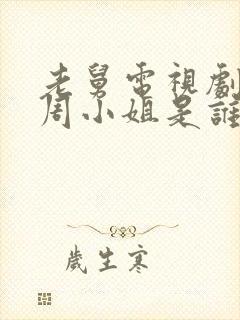 老舅電視劇
周小姐是誰
歲生寒